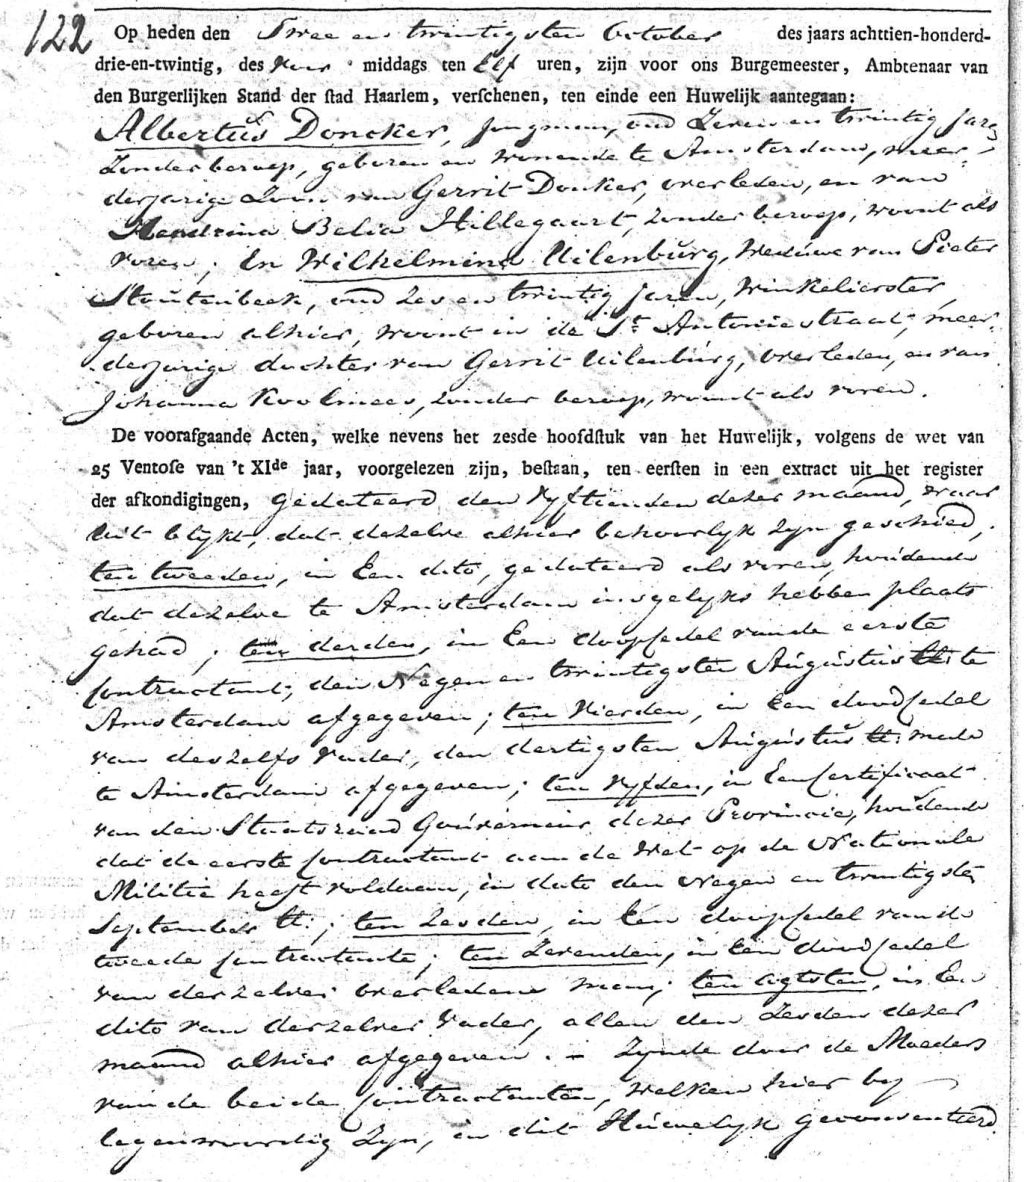 122 Op heden den Twee en twintigsten October des jaars achttien-honderd-
drie-en-twintig, des Voor middags ten Elf uren, zijn voor ons Burgemeester, Ambtenaar van
den Burgerlijken Stand der stad Haarlem, verschenen, ten einde een Huwelijk aantegaan:
Albertus Doncker, Jongman, oud Zeven en twintig Jaren
Zonder beroep, geboren en wonende te Amsterdam, meer-
derjarige Zoon van Gerrit Donker, overleden, en van
Hendrina Belia Hillegaart, Zonder beroep, woont als
voren; En Wilhelmina Uilenburg, Weduwe van Pieter
Stoutenbeek, oud Zes en twintig Jaren, Winkelierster,
geboren alhier, woont in de St. Antoniestraat, meer-
derjarige dochter van Gerrit Uilenburg, overleden, en van
Johanna Koolmees, Zonder beroep, woont als voren.
De voorafgaande Acten, welke nevens het zesde hoofdstuk van het Huwelijk, volgens de wet van
25 Ventose van 't XIde jaar, voorgelezen zijn, bestaan, ten eersten in een extract uit het register
der afkondigingen, gedateerd den Vyftienden dezer maand, waar
uit blykt, dat dezelve alhier behoorlyk zyn geschied,
ten tweeden, in Een dito, gedateerd als voren, houdende
dat dezelve te Amsterdam insgelyks hebben plaats
gehad; ten derden, in Een doopcedel van de eerste
Contractant, den Negen en twintigsten Augustus ll. te
Amsterdam afgegeven; ten Vierden, in Een doodcedel
van deszelfs Vader, den dertigsten Augustus ll. mede
te Amsterdam afgegeven; ten Vyfden, in Een Certificaat
van den Staatsraad Gouverneur dezer Provincie, houdende
dat de eerste Contractant aan de Wet op de Nationale
Militie heeft voldaan, in dato den Negen en twintigste
September ll.; ten Zesden, in Een doopcedel van de
tweede Contractante; ten Zevenden, in Een doodcedel
van derzelver overledene man; ten agtsten, in Een
dito van derzelver Vader, allen den Zesden dezer
maand alhier afgegeven. – Zynde door de Moeders
van de beide Contractanten, welken hier by
tegenwoordig zyn, in dit Huwelyk geconsenteerd.